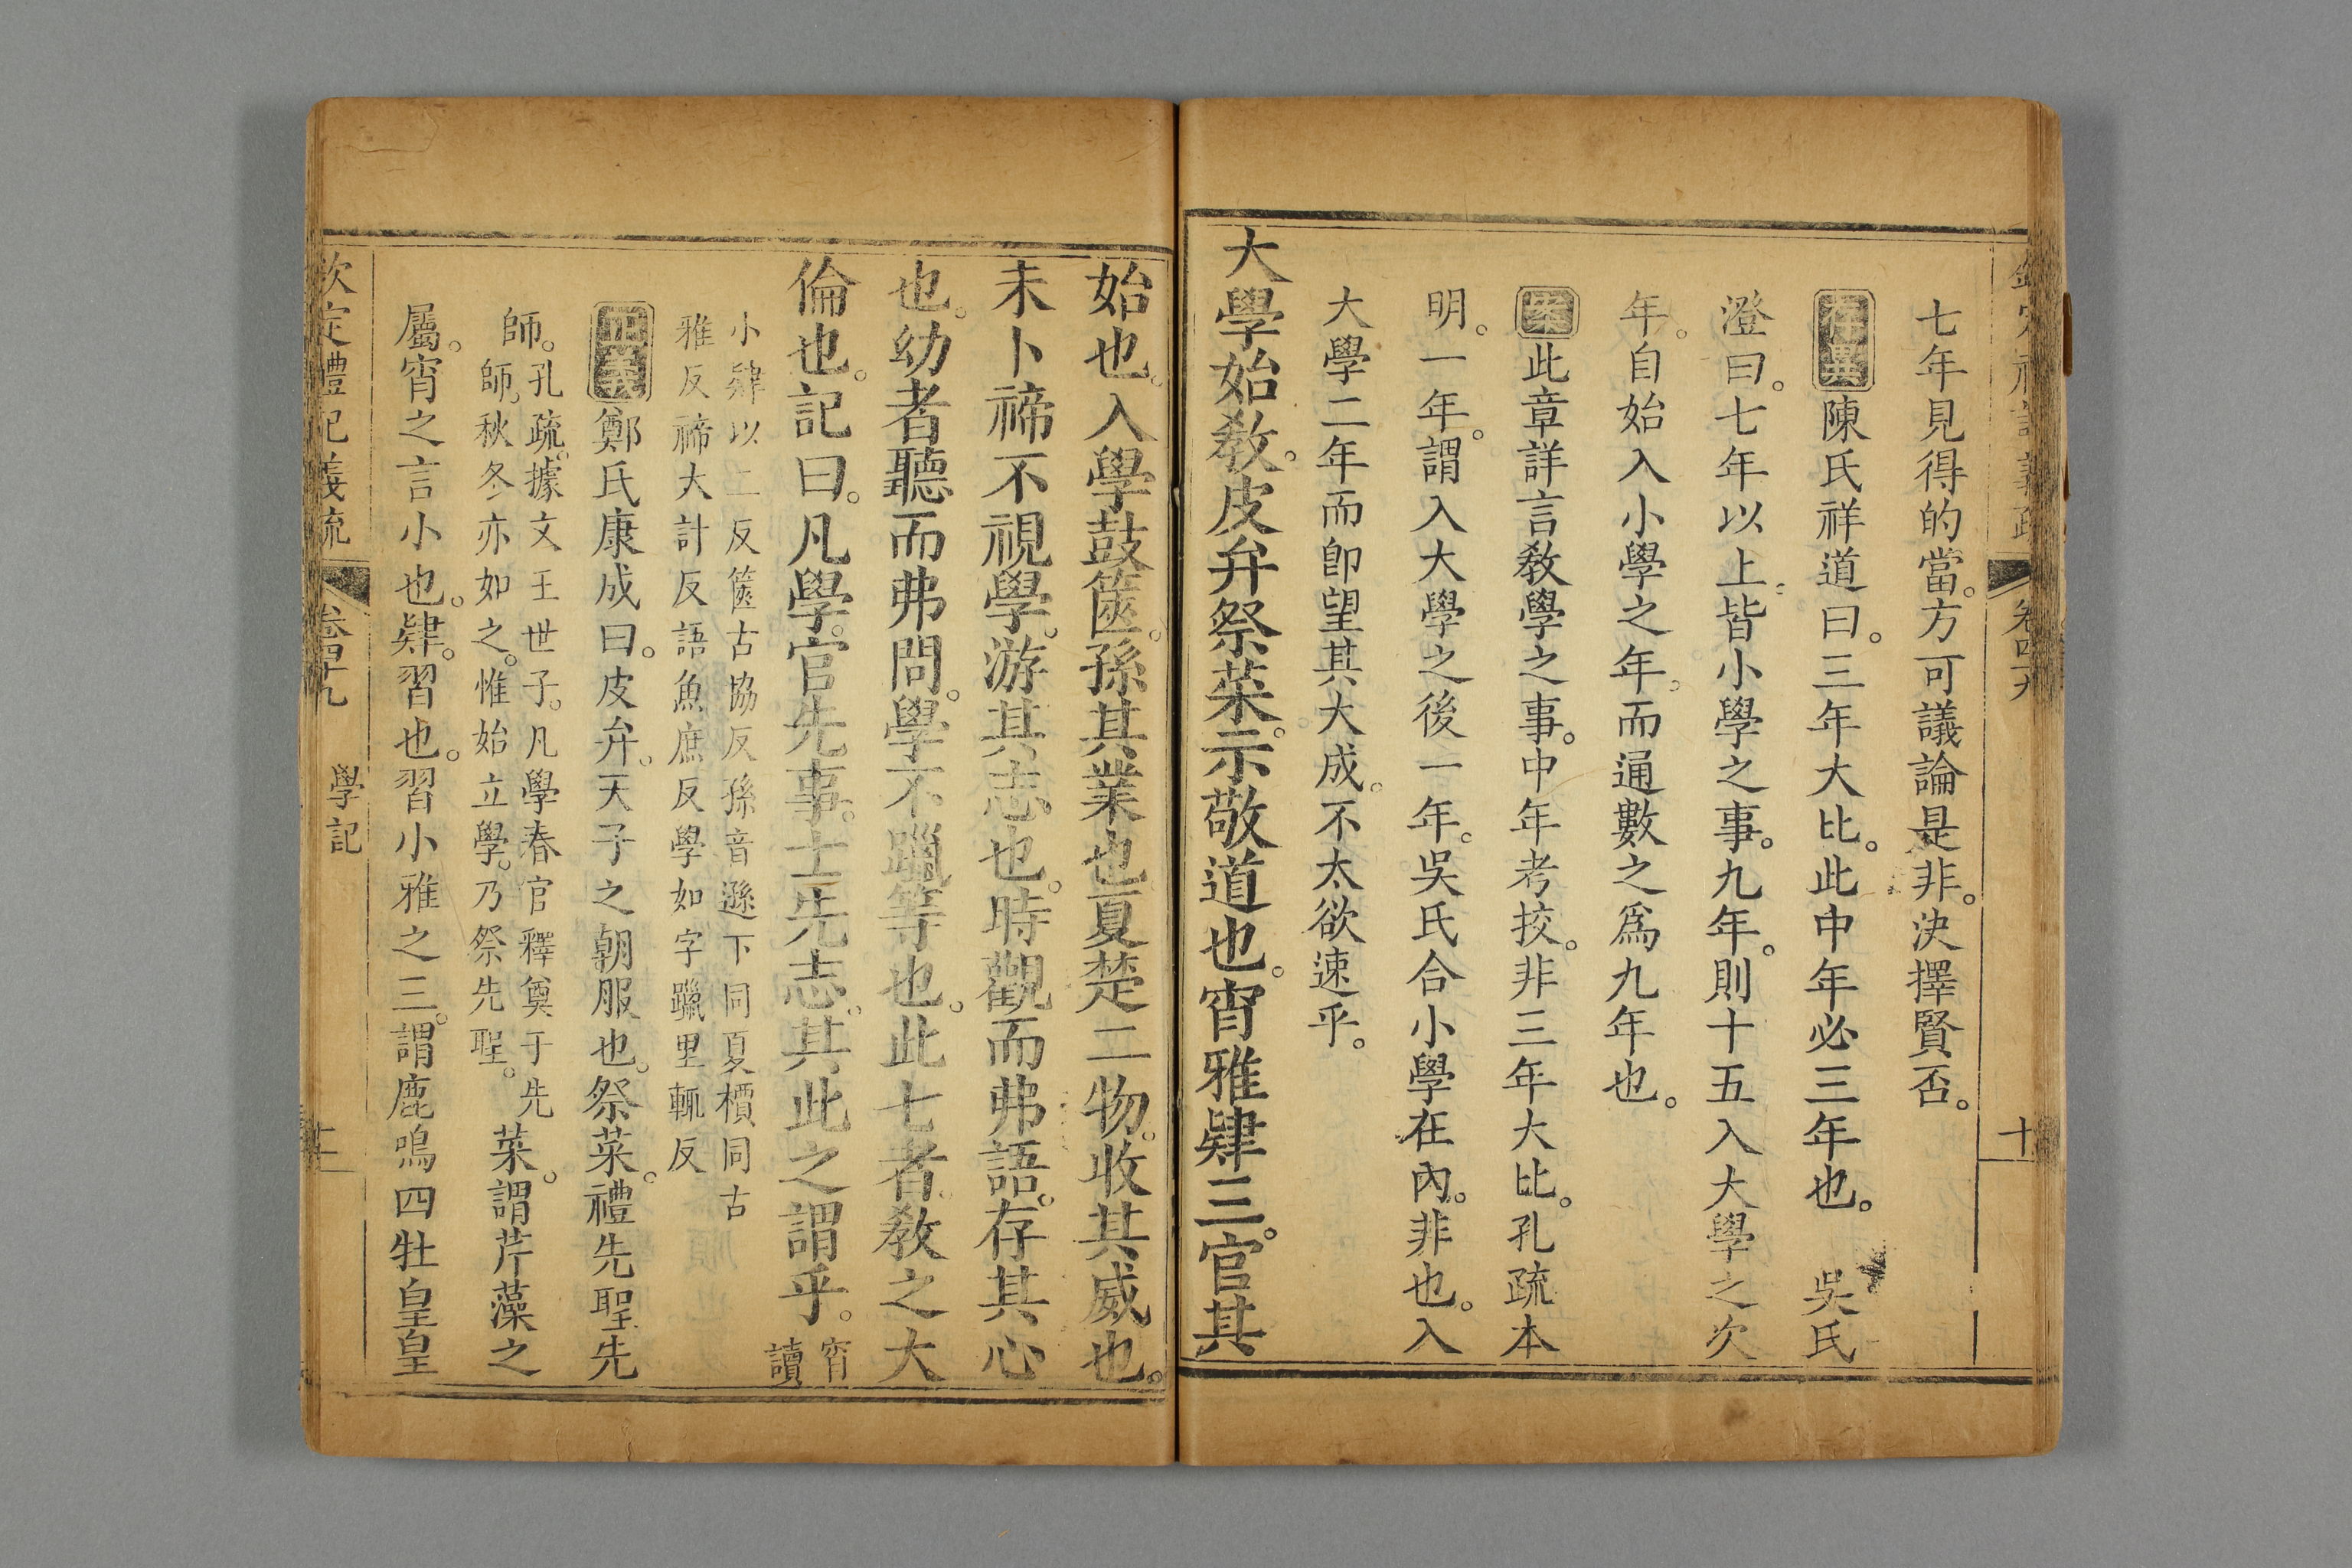 七年見得的當。方可議論是非。決擇賢否。
存異陳氏祥道曰。三年大比。此中年必三年也。 吳氏
澄曰。七年以上。皆小學之事。九年。則十五入大學之次
年。自始入小學之年。而通數之爲九年也。
案此章詳言敎學之事。中年考挍。非三年大比。孔疏本
明。一年。謂入大學之後一年。吳氏合小學在內。非也。入
大學二年而卽望其大成。不太欲速乎。
大學始敎。皮弁祭菜。示敬道也。宵雅肄三。官其
始也。入學鼓篋。孫其業也。夏楚二物。收其威也。
未卜禘不視學。游其志也。時觀而弗語。存其心
也。幼者聽而弗問。學不躐等也。此七者。敎之大
倫也。記曰。凡學。官先事。士先志。其此之謂乎。宵
讀
小肄以二反篋古協反孫音遜下同夏榎同古
雅反禘大計反語魚庶反學如字躐里輒反
正義鄭氏康成曰。皮弁。天子之朝服也。祭菜。禮先聖先
師。孔疏。據文王世子。凡學春官釋奠于先
師。秋冬亦如之。惟始立學。乃祭先聖。菜。謂芹藻之
屬。宵之言小也。肄。習也。習小雅之三。謂鹿鳴四牡皇皇
欽定禮記義疏 卷四十九 學記